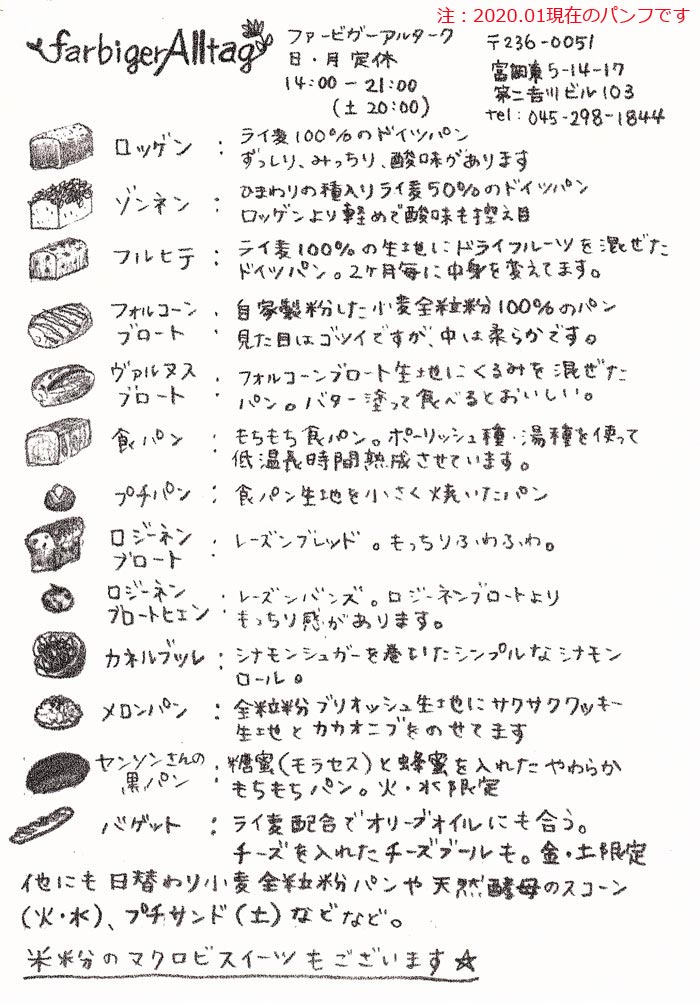 注：2020.01現在のパンフです
farbigerAlltag
ファービガーアルターク
日・月定休
14:00-21:00
(土20:00)
〒236-0051
富岡東5-14-17
第二吉川ビル103
tel: 045-298-1844
ロッゲン : ライ麦100%のドイツパン
ずっしり、みっちり、酸味があります
ゾンネン : ひまわりの種入りライ麦50%のドイツパン
ロッゲンより軽めで酸味も控え目
フルヒテ : ライ麦100%の生地にドライフルーツを混ぜた
ドイツパン。2ヶ月毎に中身を変えてます。
フォルコーン
ブロート : 自家製粉した小麦全粒粉100%のパン
見た目はゴツイですが、中は柔らかです。
ヴァルヌス
ブロート : フォルコーンブロート生地にくるみを混ぜた
パン。バター塗って食べるとおいしい。
食パン : もちもち食パン。ポーリッシュ種・湯種を使って
低温長時間熟成させています。
プチパン : 食パン生地を小さく焼いたパン
ロジーネン
ブロート : レーズンブレッド。もっちりふわふわ。
ロジーネン
ブロートヒェン : レーズンバンズ。ロジーネンブロートより
もっちり感があります。
カネルブッレ : シナモンシュガーを巻いたシンプルなシナモン
ロール。
メロンパン : 全粒粉ブリオッシュ生地にサクサククッキー
生地とカカオニブをのせてます
ヤンソンさんの
黒パン : 糖蜜(モラセス)と蜂蜜を入れたやわらか
もちもちパン。火・水限定
バゲット : ライ麦配合でオリーブオイルにも合う。
チーズを入れたチーズブールも。金・土限定
他にも日替わり小麦全粒粉パンや天然酵母のスコーン
(火・水)、プチサンド(土)などなど。
米粉のマクロビスイーツもございます☆